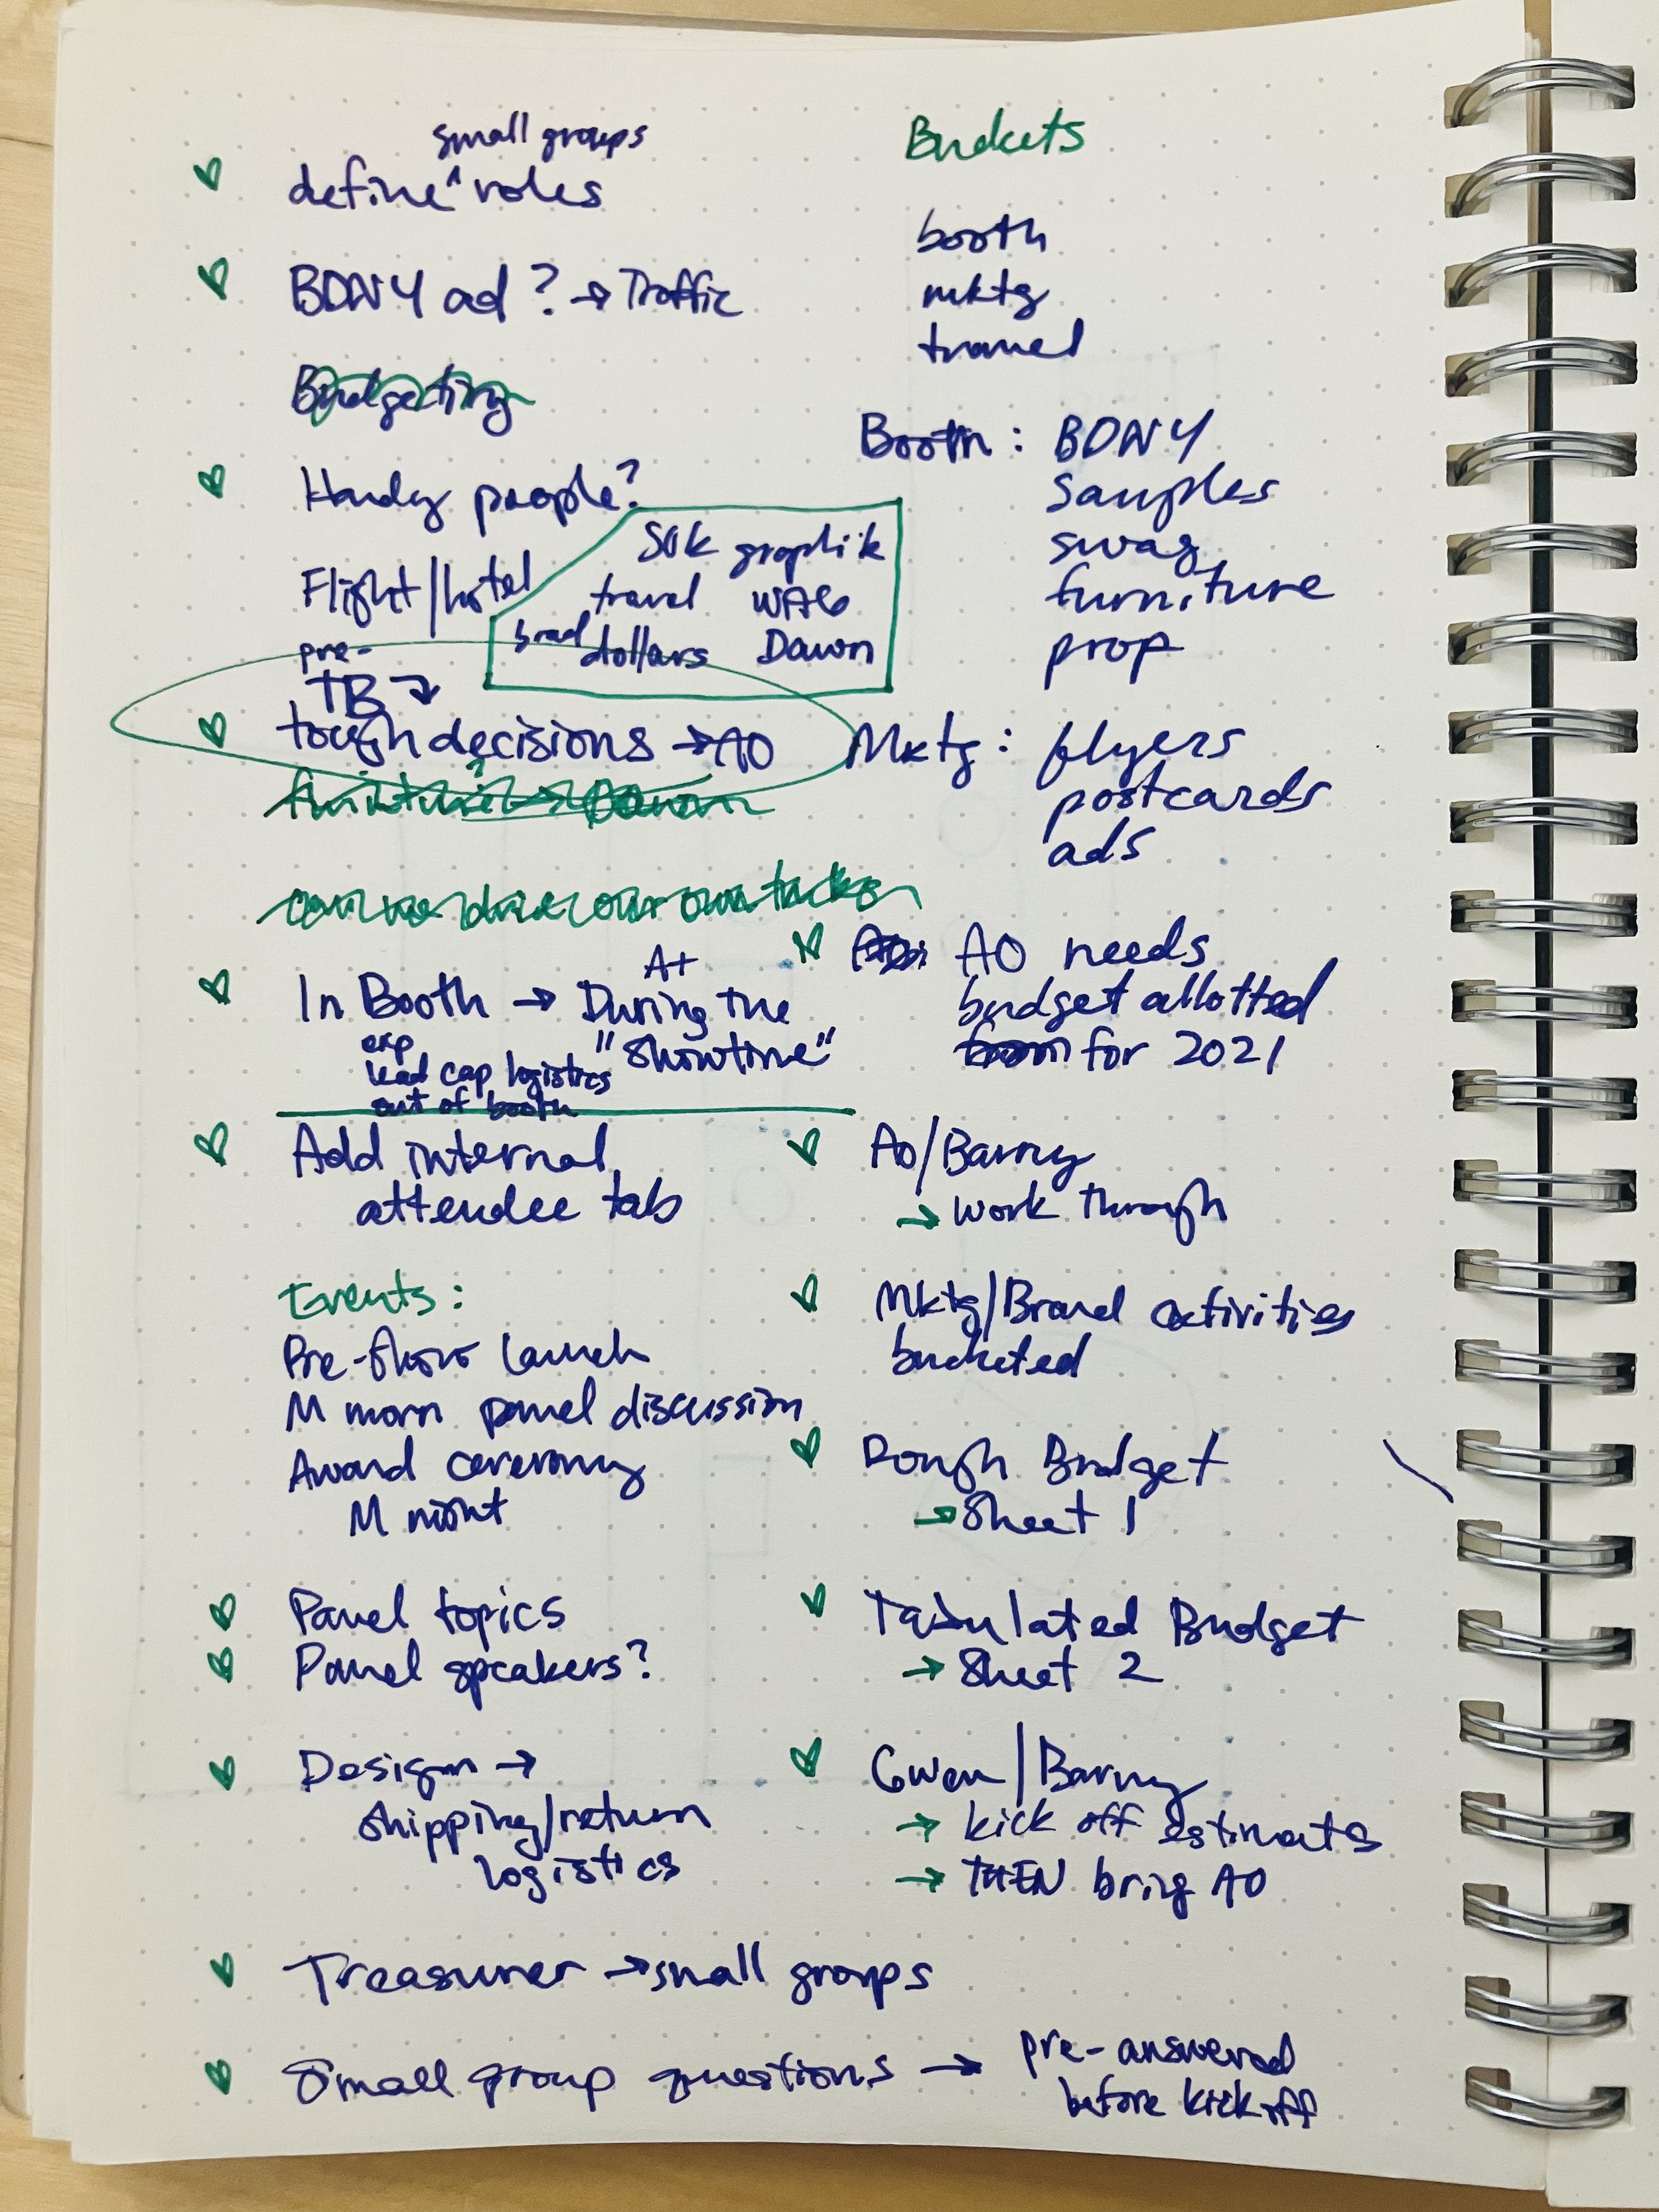 small groups
define ^ roles
BDNY ad? → Traffic
Budgeting
Handy people?
Flight/hotel
graphik
travel WAG
brad dollars Dawn
pre-
TB
tough decisions → AO
In Booth → During the
A+
"Showtime"
exp
lead cap logistics
out of booth
Add internal
attendee tab
Events:
Pre-show launch
M morn panel discussion
Award ceremony
M night
Panel topics
Panel speakers?
Design →
shipping/return
logistics
Treasurer → small groups
Small group questions → pre-answered
before kickoff
Buckets
booth
mktg
travel
Booth: BDNY
samples
swag
furniture
prop
Mktg: flyers
postcards
ads
AO needs
budget allotted
for 2021
AO/Barny
→ work through
Mktg/Brand activities
bucketed
Rough Budget
→ Sheet 1
Tabulated Budget
→ Sheet 2
Gwen/Barny
→ kick off estimates
→ THEN bring AO